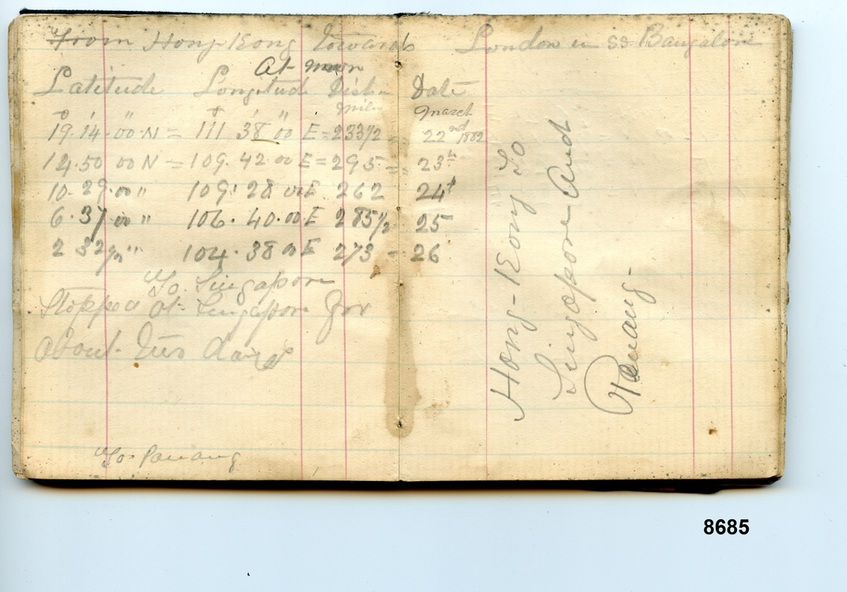 From Hong-Kong towards London in SS Bangalore
At noon
Latitude Longitude Distn Date
miles March
19. 14. 00 N = 111 38 00 E = 233 1/2 22nd 1882
14. 50 00 N = 109. 42. 00 E = 295 = 23th
10. 29. 00 " 109. 28 00 E 262 24t
6. 37 00 " 106. 40. 00 E 285 1/2 25
2 32 " 104. 38 00 E 273 - 26
To. Singapore
Stopped at Singapore for
about two days
To. Panang
Hong-Kong to
Singapore and
Penang-
8685